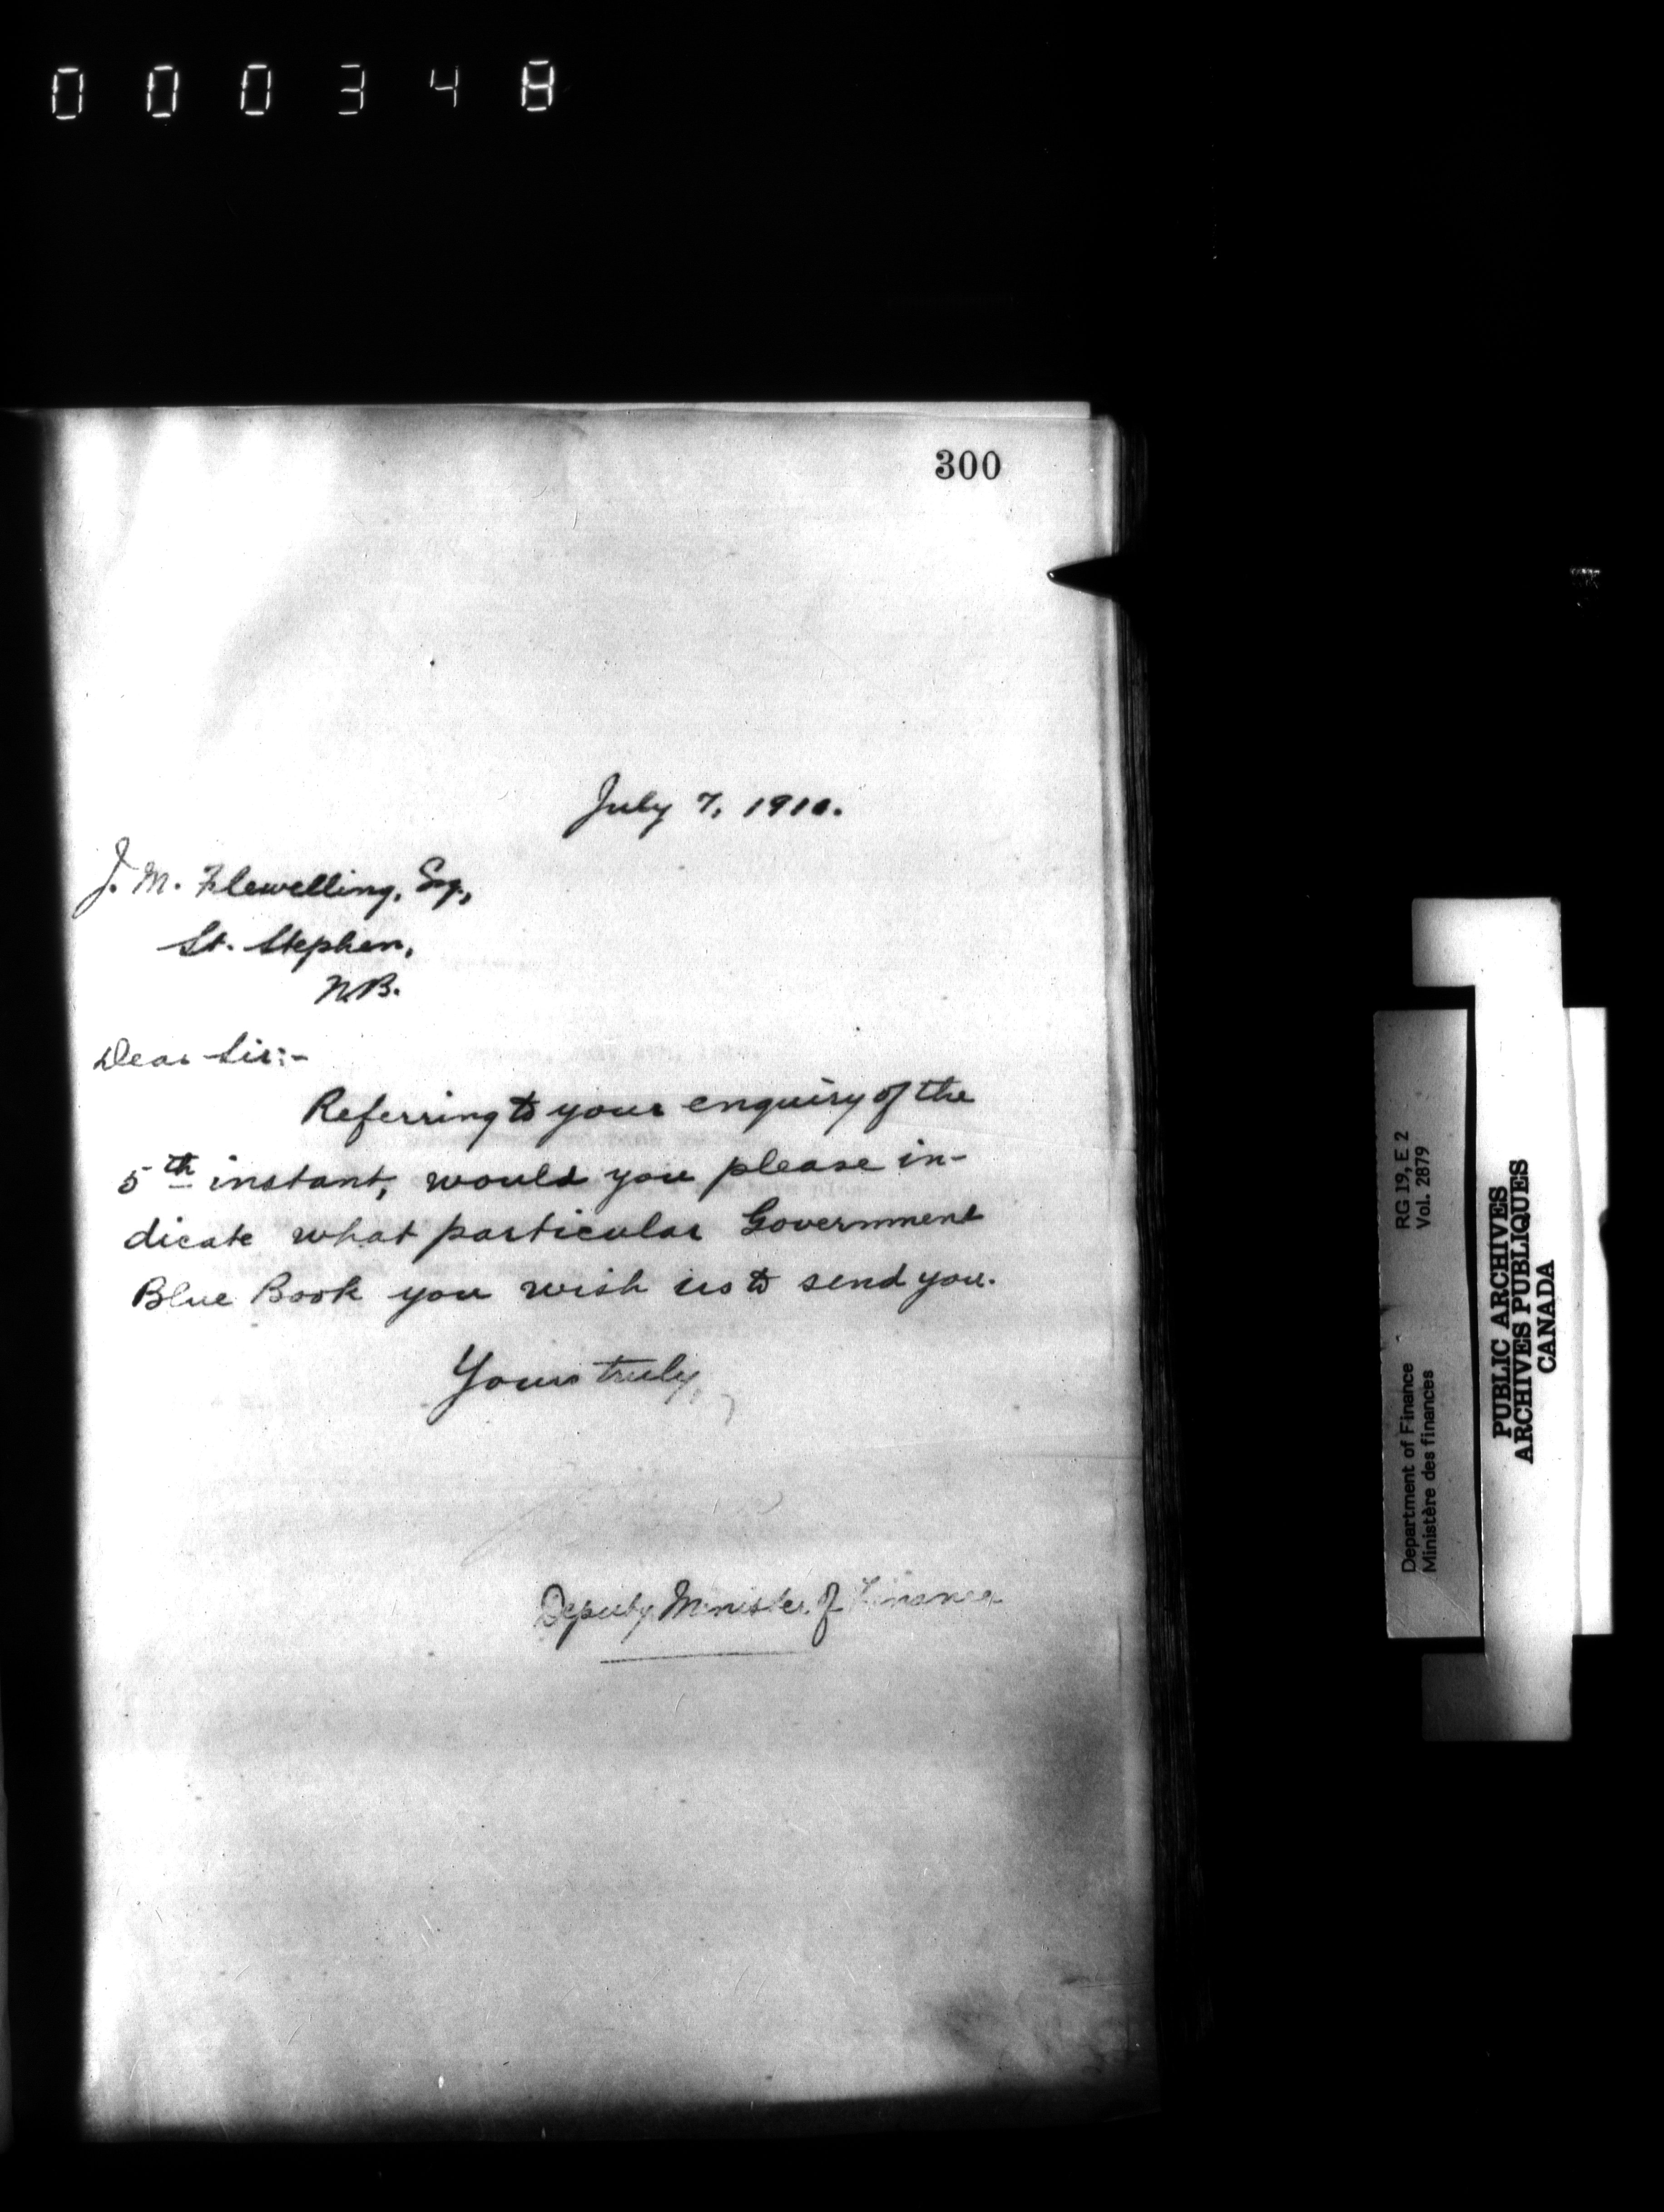 000348
300
July 7, 1910.
J. M. Flewelling, Esq.,
St. Stephen,
N.B.
Dear Sir:-
Referring to your enquiry of the
5th instant, would you please in-
dicate what particular Government
Blue Book you wish us to send you.
Yours truly,
Deputy Minister of Finance
Department of Finance RG 19, E 2
Ministère des finances Vol. 2879
PUBLIC ARCHIVES
ARCHIVES PUBLIQUES
CANADA